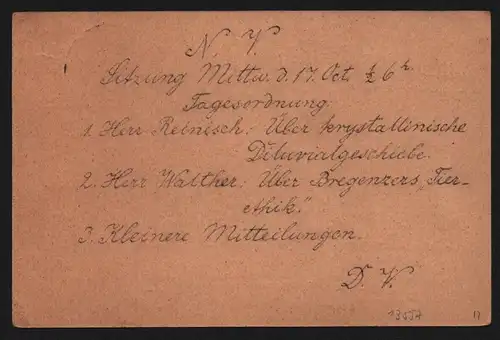 N. V.
Sitzung Mittw. d. 17. Oct. ½ 6 h.
Tagesordnung:
1. Herr Reinisch: Über krystallinische
Diluvialgeschiebe.
2. Herr Walther: Über Bregenzers „Tier-
ethik."
3. Kleinere Mitteilungen.
D. V.
13557